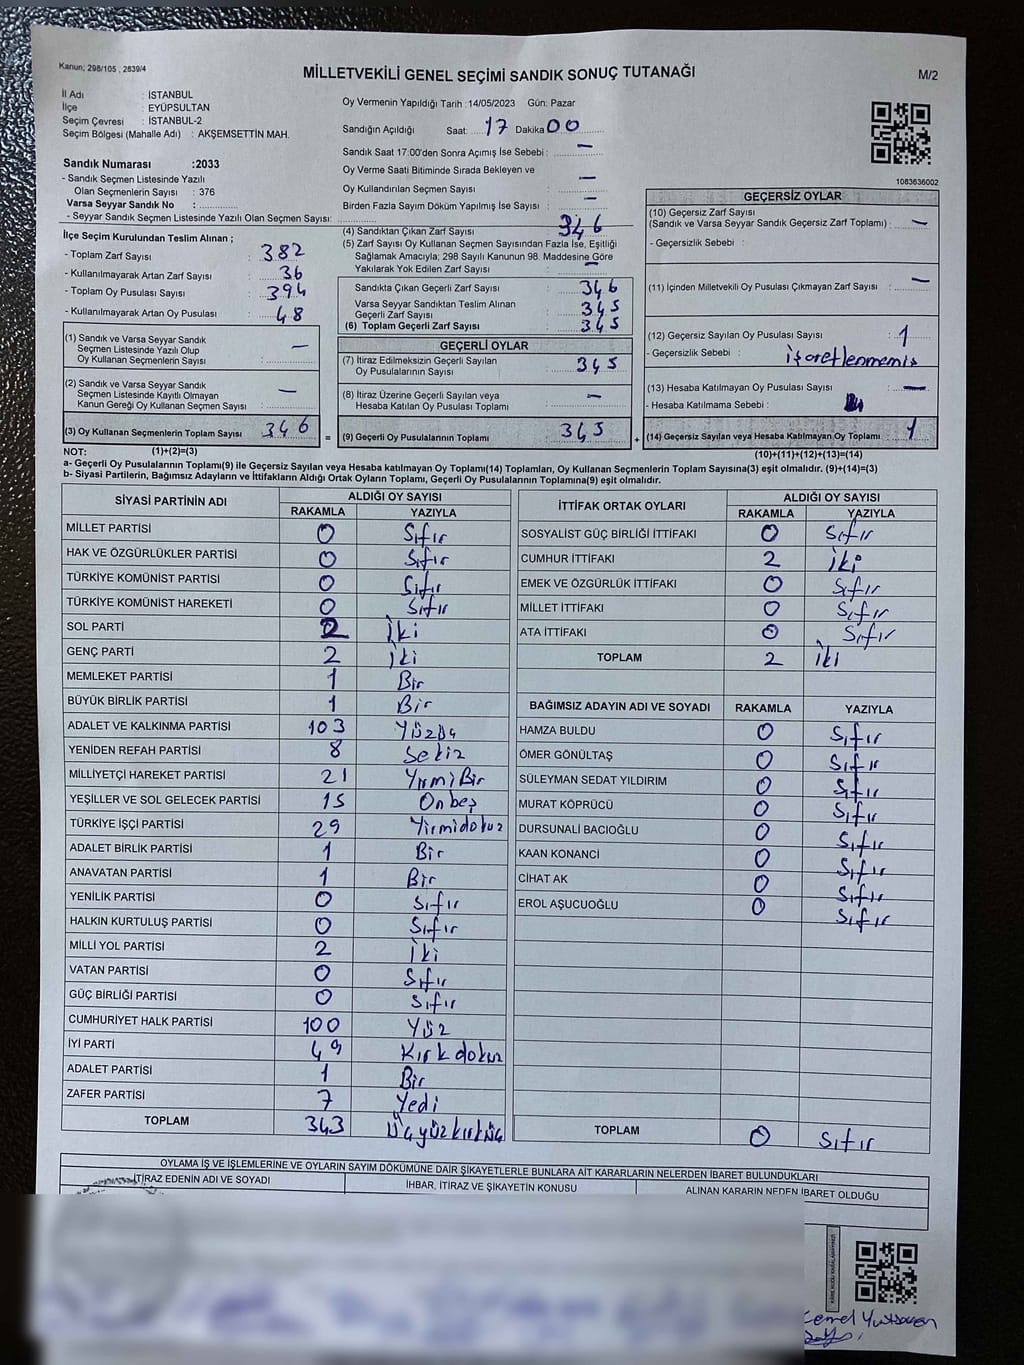 Kanun; 298/105 ; 2839/4
MİLLETVEKİLİ GENEL SEÇİMİ SANDIK SONUÇ TUTANAĞI
M/2
İl Adı : İSTANBUL
İlçe : EYÜPSULTAN
Seçim Çevresi : İSTANBUL-2
Seçim Bölgesi (Mahalle Adı) : AKŞEMSETTİN MAH.
Sandık Numarası :2033
- Sandık Seçmen Listesinde Yazılı
Olan Seçmenlerin Sayısı : 376
Varsa Seyyar Sandık No :
- Seyyar Sandık Seçmen Listesinde Yazılı Olan Seçmen Sayısı:
Oy Vermenin Yapıldığı Tarih :14/05/2023 Gün: Pazar
Sandığın Açıldığı Saat: 17 Dakika 00
Sandık Saat 17:00'den Sonra Açımış İse Sebebi : —
Oy Verme Saati Bitiminde Sırada Bekleyen ve
Oy Kullandırılan Seçmen Sayısı : —
Birden Fazla Sayım Döküm Yapılmış İse Sayısı : —
1083636002
İlçe Seçim Kurulundan Teslim Alınan ;
- Toplam Zarf Sayısı : 382
- Kullanılmayarak Artan Zarf Sayısı : 36
- Toplam Oy Pusulası Sayısı : 394
- Kullanılmayarak Artan Oy Pusulası : 48
(1) Sandık ve Varsa Seyyar Sandık
Seçmen Listesinde Yazılı Olup
Oy Kullanan Seçmenlerin Sayısı : —
(2) Sandık ve Varsa Seyyar Sandık
Seçmen Listesinde Kayıtlı Olmayan
Kanun Gereği Oy Kullanan Seçmen Sayısı : —
(3) Oy Kullanan Seçmenlerin Toplam Sayısı : 346
(1)+(2)=(3)
(4) Sandıktan Çıkan Zarf Sayısı : 346
(5) Zarf Sayısı Oy Kullanan Seçmen Sayısından Fazla İse, Eşitliği
Sağlamak Amacıyla; 298 Sayılı Kanunun 98. Maddesine Göre
Yakılarak Yok Edilen Zarf Sayısı : —
Sandıkta Çıkan Geçerli Zarf Sayısı : 346
Varsa Seyyar Sandıktan Teslim Alınan
Geçerli Zarf Sayısı : 345
(6) Toplam Geçerli Zarf Sayısı : 345
GEÇERLİ OYLAR
(7) İtiraz Edilmeksizin Geçerli Sayılan
Oy Pusulalarının Sayısı : 345
(8) İtiraz Üzerine Geçerli Sayılan veya
Hesaba Katılan Oy Pusulası Toplamı : —
= (9) Geçerli Oy Pusulalarının Toplamı : 345 +
GEÇERSİZ OYLAR
(10) Geçersiz Zarf Sayısı
(Sandık ve Varsa Seyyar Sandık Geçersiz Zarf Toplamı) : —
- Geçersizlik Sebebi :
(11) İçinden Milletvekili Oy Pusulası Çıkmayan Zarf Sayısı : —
(12) Geçersiz Sayılan Oy Pusulası Sayısı : 1
- Geçersizlik Sebebi : işaretlenmemiş
(13) Hesaba Katılmayan Oy Pusulası Sayısı : —
- Hesaba Katılmama Sebebi :
(14) Geçersiz Sayılan veya Hesaba Katılmayan Oy Toplamı : 1
(10)+(11)+(12)+(13)=(14)
NOT:
a- Geçerli Oy Pusulalarının Toplamı(9) ile Geçersiz Sayılan veya Hesaba katılmayan Oy Toplamı(14) Toplamları, Oy Kullanan Seçmenlerin Toplam Sayısına(3) eşit olmalıdır. (9)+(14)=(3)
b- Siyasi Partilerin, Bağımsız Adayların ve İttifakların Aldığı Ortak Oyların Toplamı, Geçerli Oy Pusulalarının Toplamına(9) eşit olmalıdır.
SİYASİ PARTİNİN ADI ALDIĞI OY SAYISI
RAKAMLA YAZIYLA
MİLLET PARTİSİ 0 Sıfır
HAK VE ÖZGÜRLÜKLER PARTİSİ 0 Sıfır
TÜRKİYE KOMÜNİST PARTİSİ 0 Sıfır
TÜRKİYE KOMÜNİST HAREKETİ 0 Sıfır
SOL PARTİ 2 İki
GENÇ PARTİ 2 İki
MEMLEKET PARTİSİ 1 Bir
BÜYÜK BİRLİK PARTİSİ 1 Bir
ADALET VE KALKINMA PARTİSİ 103 Yüzüç
YENİDEN REFAH PARTİSİ 8 Sekiz
MİLLİYETÇİ HAREKET PARTİSİ 21 YirmiBir
YEŞİLLER VE SOL GELECEK PARTİSİ 15 Onbeş
TÜRKİYE İŞÇİ PARTİSİ 29 Yirmidokuz
ADALET BİRLİK PARTİSİ 1 Bir
ANAVATAN PARTİSİ 1 Bir
YENİLİK PARTİSİ 0 Sıfır
HALKIN KURTULUŞ PARTİSİ 0 Sıfır
MİLLİ YOL PARTİSİ 2 İki
VATAN PARTİSİ 0 Sıfır
GÜÇ BİRLİĞİ PARTİSİ 0 Sıfır
CUMHURİYET HALK PARTİSİ 100 Yüz
İYİ PARTİ 49 Kırkdokuz
ADALET PARTİSİ 1 Bir
ZAFER PARTİSİ 7 Yedi
TOPLAM 343 Üçyüzkırküç
İTTİFAK ORTAK OYLARI ALDIĞI OY SAYISI
RAKAMLA YAZIYLA
SOSYALİST GÜÇ BİRLİĞİ İTTİFAKI 0 Sıfır
CUMHUR İTTİFAKI 2 İki
EMEK VE ÖZGÜRLÜK İTTİFAKI 0 Sıfır
MİLLET İTTİFAKI 0 Sıfır
ATA İTTİFAKI 0 Sıfır
TOPLAM 2 İki
BAĞIMSIZ ADAYIN ADI VE SOYADI RAKAMLA YAZIYLA
HAMZA BULDU 0 Sıfır
ÖMER GÖNÜLTAŞ 0 Sıfır
SÜLEYMAN SEDAT YILDIRIM 0 Sıfır
MURAT KÖPRÜCÜ 0 Sıfır
DURSUNALİ BACIOĞLU 0 Sıfır
KAAN KONANCİ 0 Sıfır
CİHAT AK 0 Sıfır
EROL AŞUCUOĞLU 0 Sıfır
TOPLAM 0 Sıfır
OYLAMA İŞ VE İŞLEMLERİNE VE OYLARIN SAYIM DÖKÜMÜNE DAİR ŞİKAYETLERLE BUNLARA AİT KARARLARIN NELERDEN İBARET BULUNDUKLARI
İTİRAZ EDENİN ADI VE SOYADI İHBAR, İTİRAZ VE ŞİKAYETİN KONUSU ALINAN KARARIN NEDEN İBARET OLDUĞU